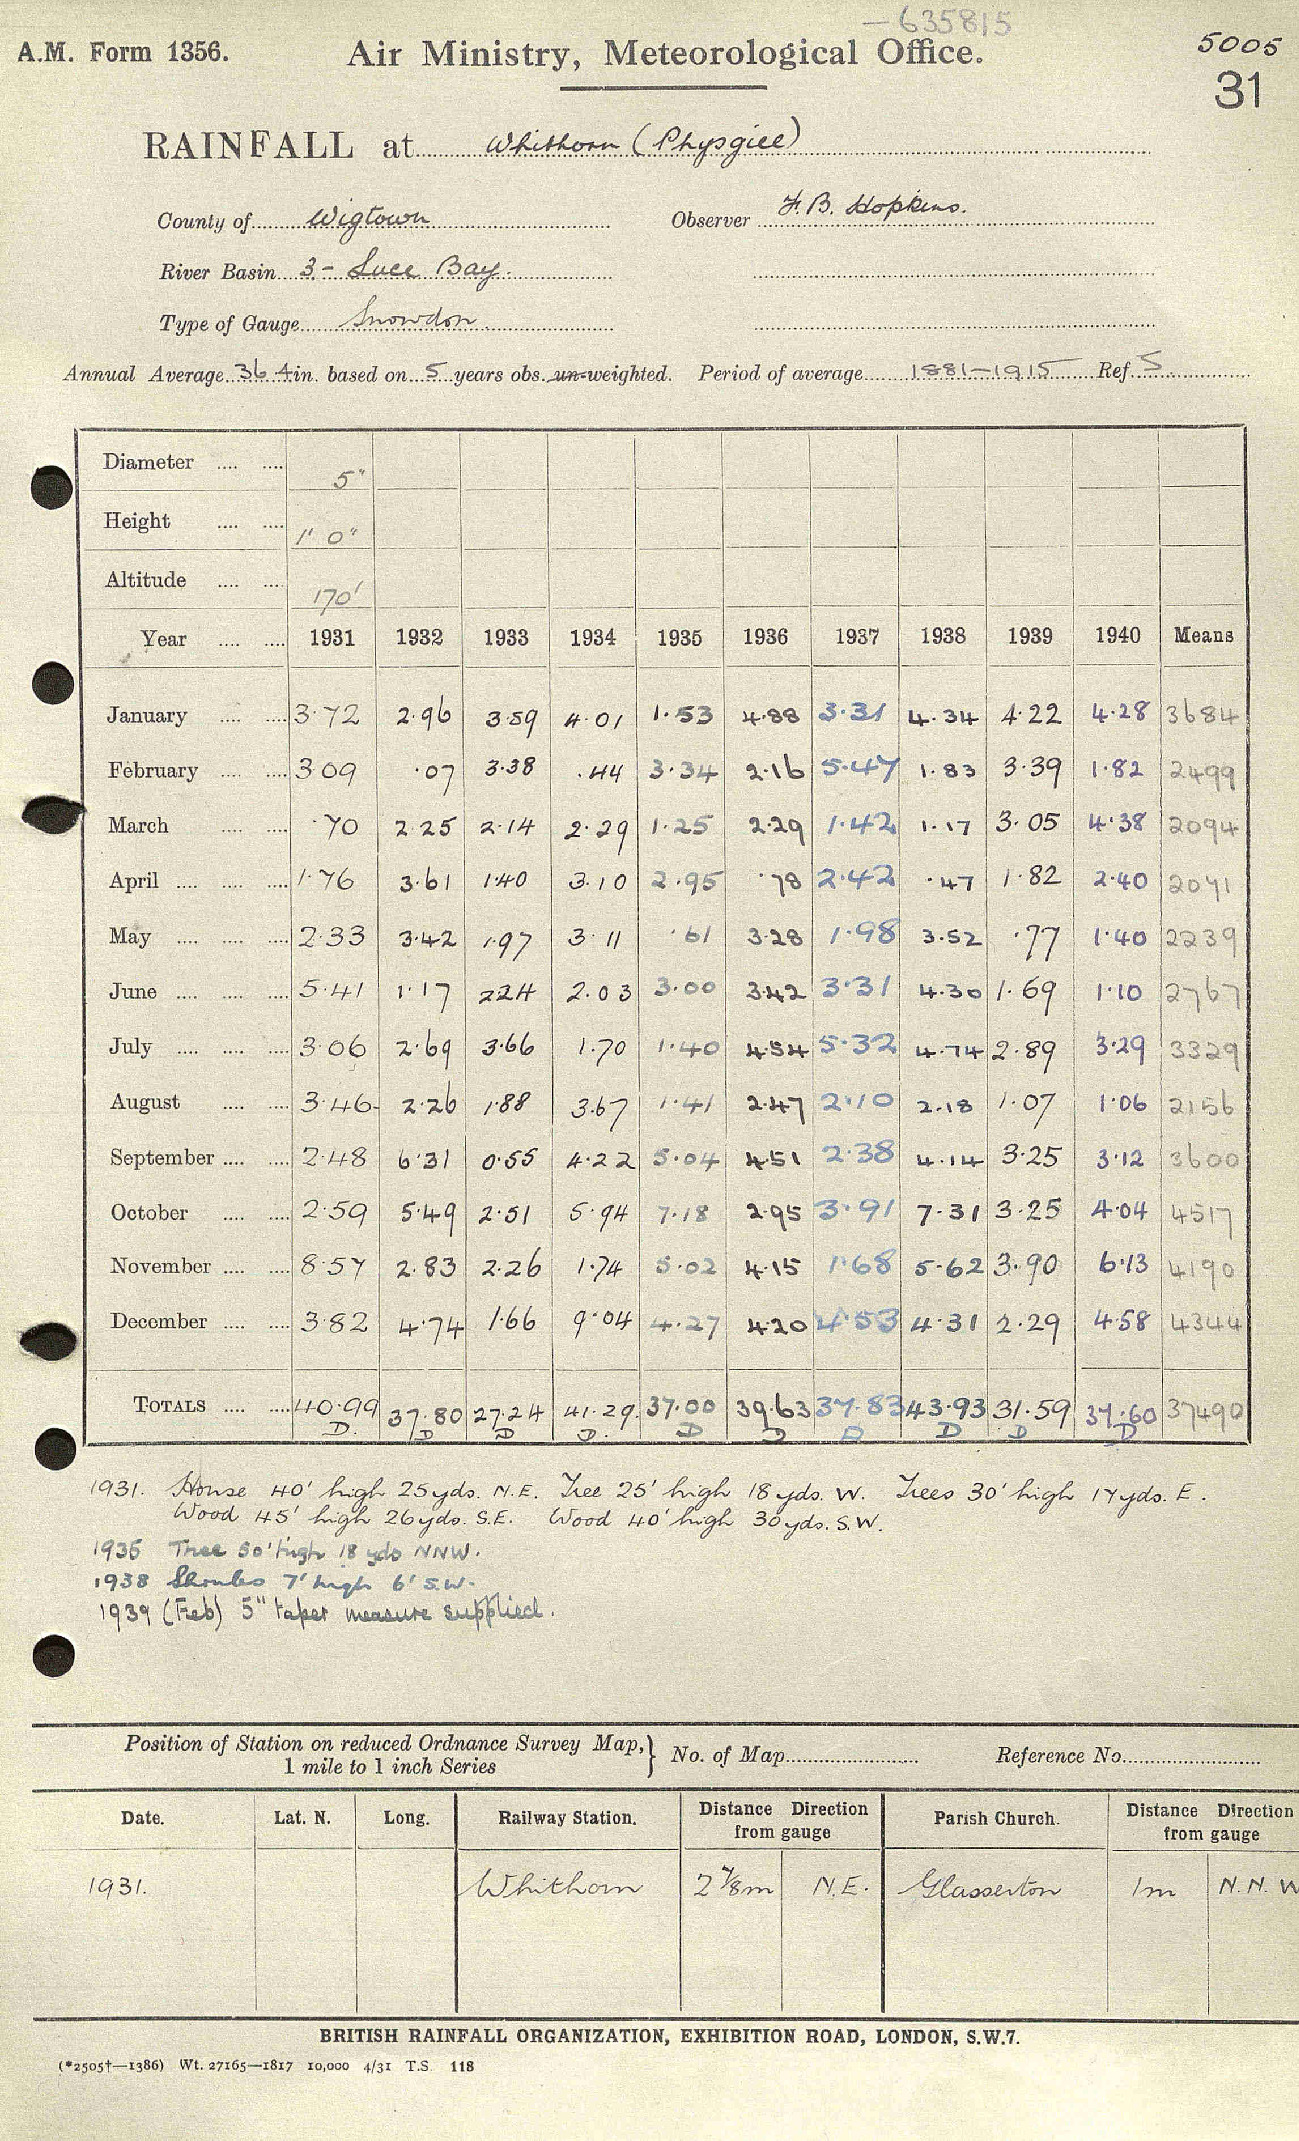 —635815
A.M. Form 1356. Air Ministry, Meteorological Office. 5005
31
RAINFALL at Whithorn (Physgill)
County of Wigtown Observer F. B. Hopkins.
River Basin 3 - Luce Bay.
Type of Gauge Snowdon
Annual Average 36.4 in. based on 5 years obs. un-weighted. Period of average 1881-1915 Ref. S.
Diameter .... .... 5"
Height .... .... 1' 0"
Altitude .... .... 170'
Year .... .... 1931 1932 1933 1934 1935 1936 1937 1938 1939 1940 Means
January .... .... 3.72 2.96 3.59 4.01 1.53 4.88 3.31 4.34 4.22 4.28 3684
February .... .... 3.09 .07 3.38 .44 3.34 2.16 5.47 1.83 3.39 1.82 2499
March .... .... .70 2.25 2.14 2.29 1.25 2.29 1.42 1.17 3.05 4.38 2094
April .... .... .... 1.76 3.61 1.40 3.10 2.95 .78 2.42 .47 1.82 2.40 2071
May .... .... .... 2.33 3.42 1.97 3.11 .61 3.28 1.98 3.52 .77 1.40 2239
June .... .... .... 5.41 1.17 2.24 2.03 3.00 3.42 3.31 4.30 1.69 1.10 2767
July .... .... .... 3.06 2.69 3.66 1.70 1.40 4.54 5.32 4.74 2.89 3.29 3329
August .... .... 3.46 2.26 1.88 3.67 1.41 2.47 2.10 2.18 1.07 1.06 2156
September .... .... 2.48 6.31 0.55 4.22 5.04 4.51 2.38 4.14 3.25 3.12 3600
October .... .... 2.59 5.49 2.51 5.94 7.18 2.95 3.91 7.31 3.25 4.04 4517
November .... .... 8.57 2.83 2.26 1.74 5.02 4.15 1.68 5.62 3.90 6.13 4190
December .... .... 3.82 4.74 1.66 9.04 4.27 4.20 4.53 4.31 2.29 4.58 4344
TOTALS .... .... 40.99 37.80 27.24 41.29 37.00 39.63 37.83 43.93 31.59 37.60 37490
D. D D D. D D D D D D
1931. House 40' high 25yds. N.E. Tree 25' high 18yds. W. Trees 30' high 17yds. E.
Wood 45' high 26yds. S.E. Wood 40' high 30yds. S.W.
1935 Tree 50' high 18 yds NNW.
1938 Shrubs 7' high 6' S.W.
1939 (Feb) 5" taper measure supplied.
Position of Station on reduced Ordnance Survey Map, } No. of Map Reference No.
1 mile to 1 inch Series
Date. Lat. N. Long. Railway Station. Distance Direction from gauge Parish Church. Distance Direction from gauge
1931. Whithorn 2 7/8m N.E. Glasserton 1m N.N.W
BRITISH RAINFALL ORGANIZATION, EXHIBITION ROAD, LONDON, S.W.7.
(*2505†—1386) Wt. 27165—1817 10,000 4/31 T.S. 118